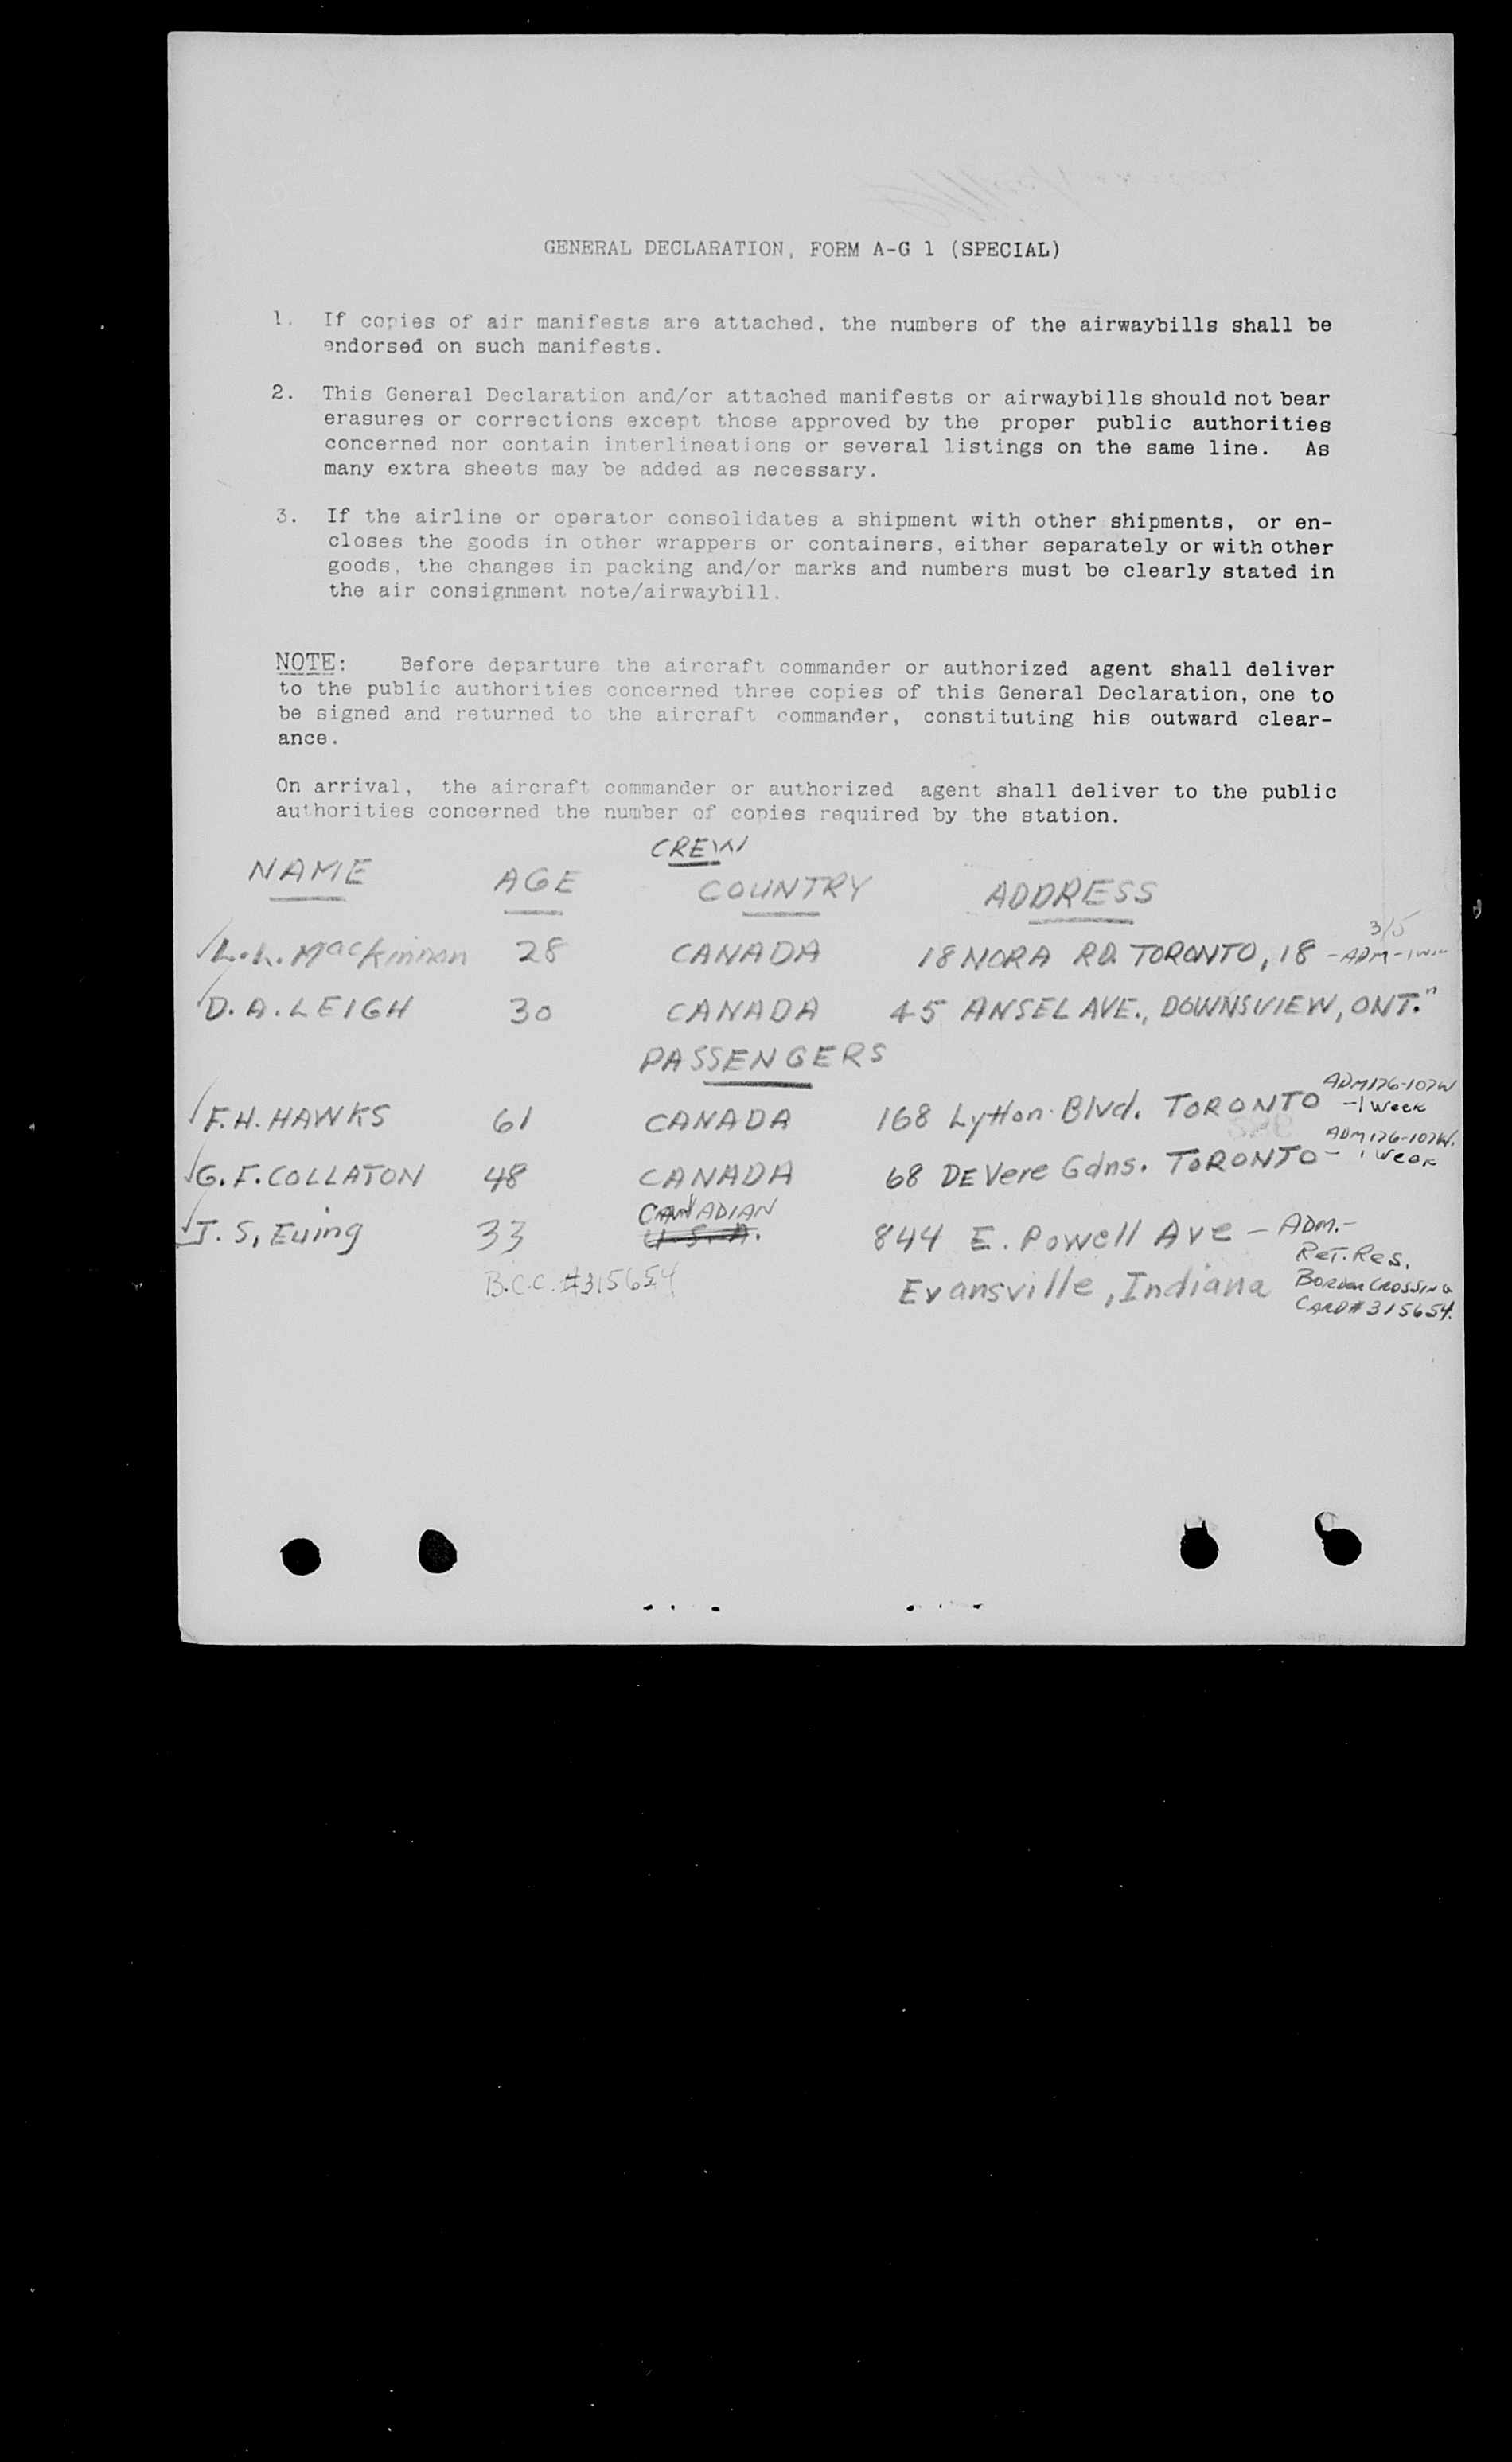 GENERAL DECLARATION, FORM A-G 1 (SPECIAL)
1. If copies of air manifests are attached, the numbers of the airwaybills shall be
endorsed on such manifests.
2. This General Declaration and/or attached manifests or airwaybills should not bear
erasures or corrections except those approved by the proper public authorities
concerned nor contain interlineations or several listings on the same line. As
many extra sheets may be added as necessary.
3. If the airline or operator consolidates a shipment with other shipments, or en-
closes the goods in other wrappers or containers, either separately or with other
goods, the changes in packing and/or marks and numbers must be clearly stated in
the air consignment note/airwaybill.
NOTE: Before departure the aircraft commander or authorized agent shall deliver
to the public authorities concerned three copies of this General Declaration, one to
be signed and returned to the aircraft commander, constituting his outward clear-
ance.
On arrival, the aircraft commander or authorized agent shall deliver to the public
authorities concerned the number of copies required by the station.
CREW
NAME AGE COUNTRY ADDRESS
3/5
MacKinnon 28 CANADA 18 NORA RD. TORONTO, 18 - ADM -
D. A. LEIGH 30 CANADA 45 ANSEL AVE., DOWNSVIEW, ONT. "
PASSENGERS
ADM 176-107W
F.H. HAWKS 61 CANADA 168 Lytton Blvd. TORONTO - 1 Week
ADM 176-107W.
G.F. COLLATON 48 CANADA 68 DE Vere Gdns. TORONTO - 1 Week
CANADIAN
J. S. Ewing 33 U.S.A. 844 E. Powell Ave - ADM. -
RET. RES.
B.C.C. #315654 Evansville, Indiana BORDER CROSSING
CARD # 315654.